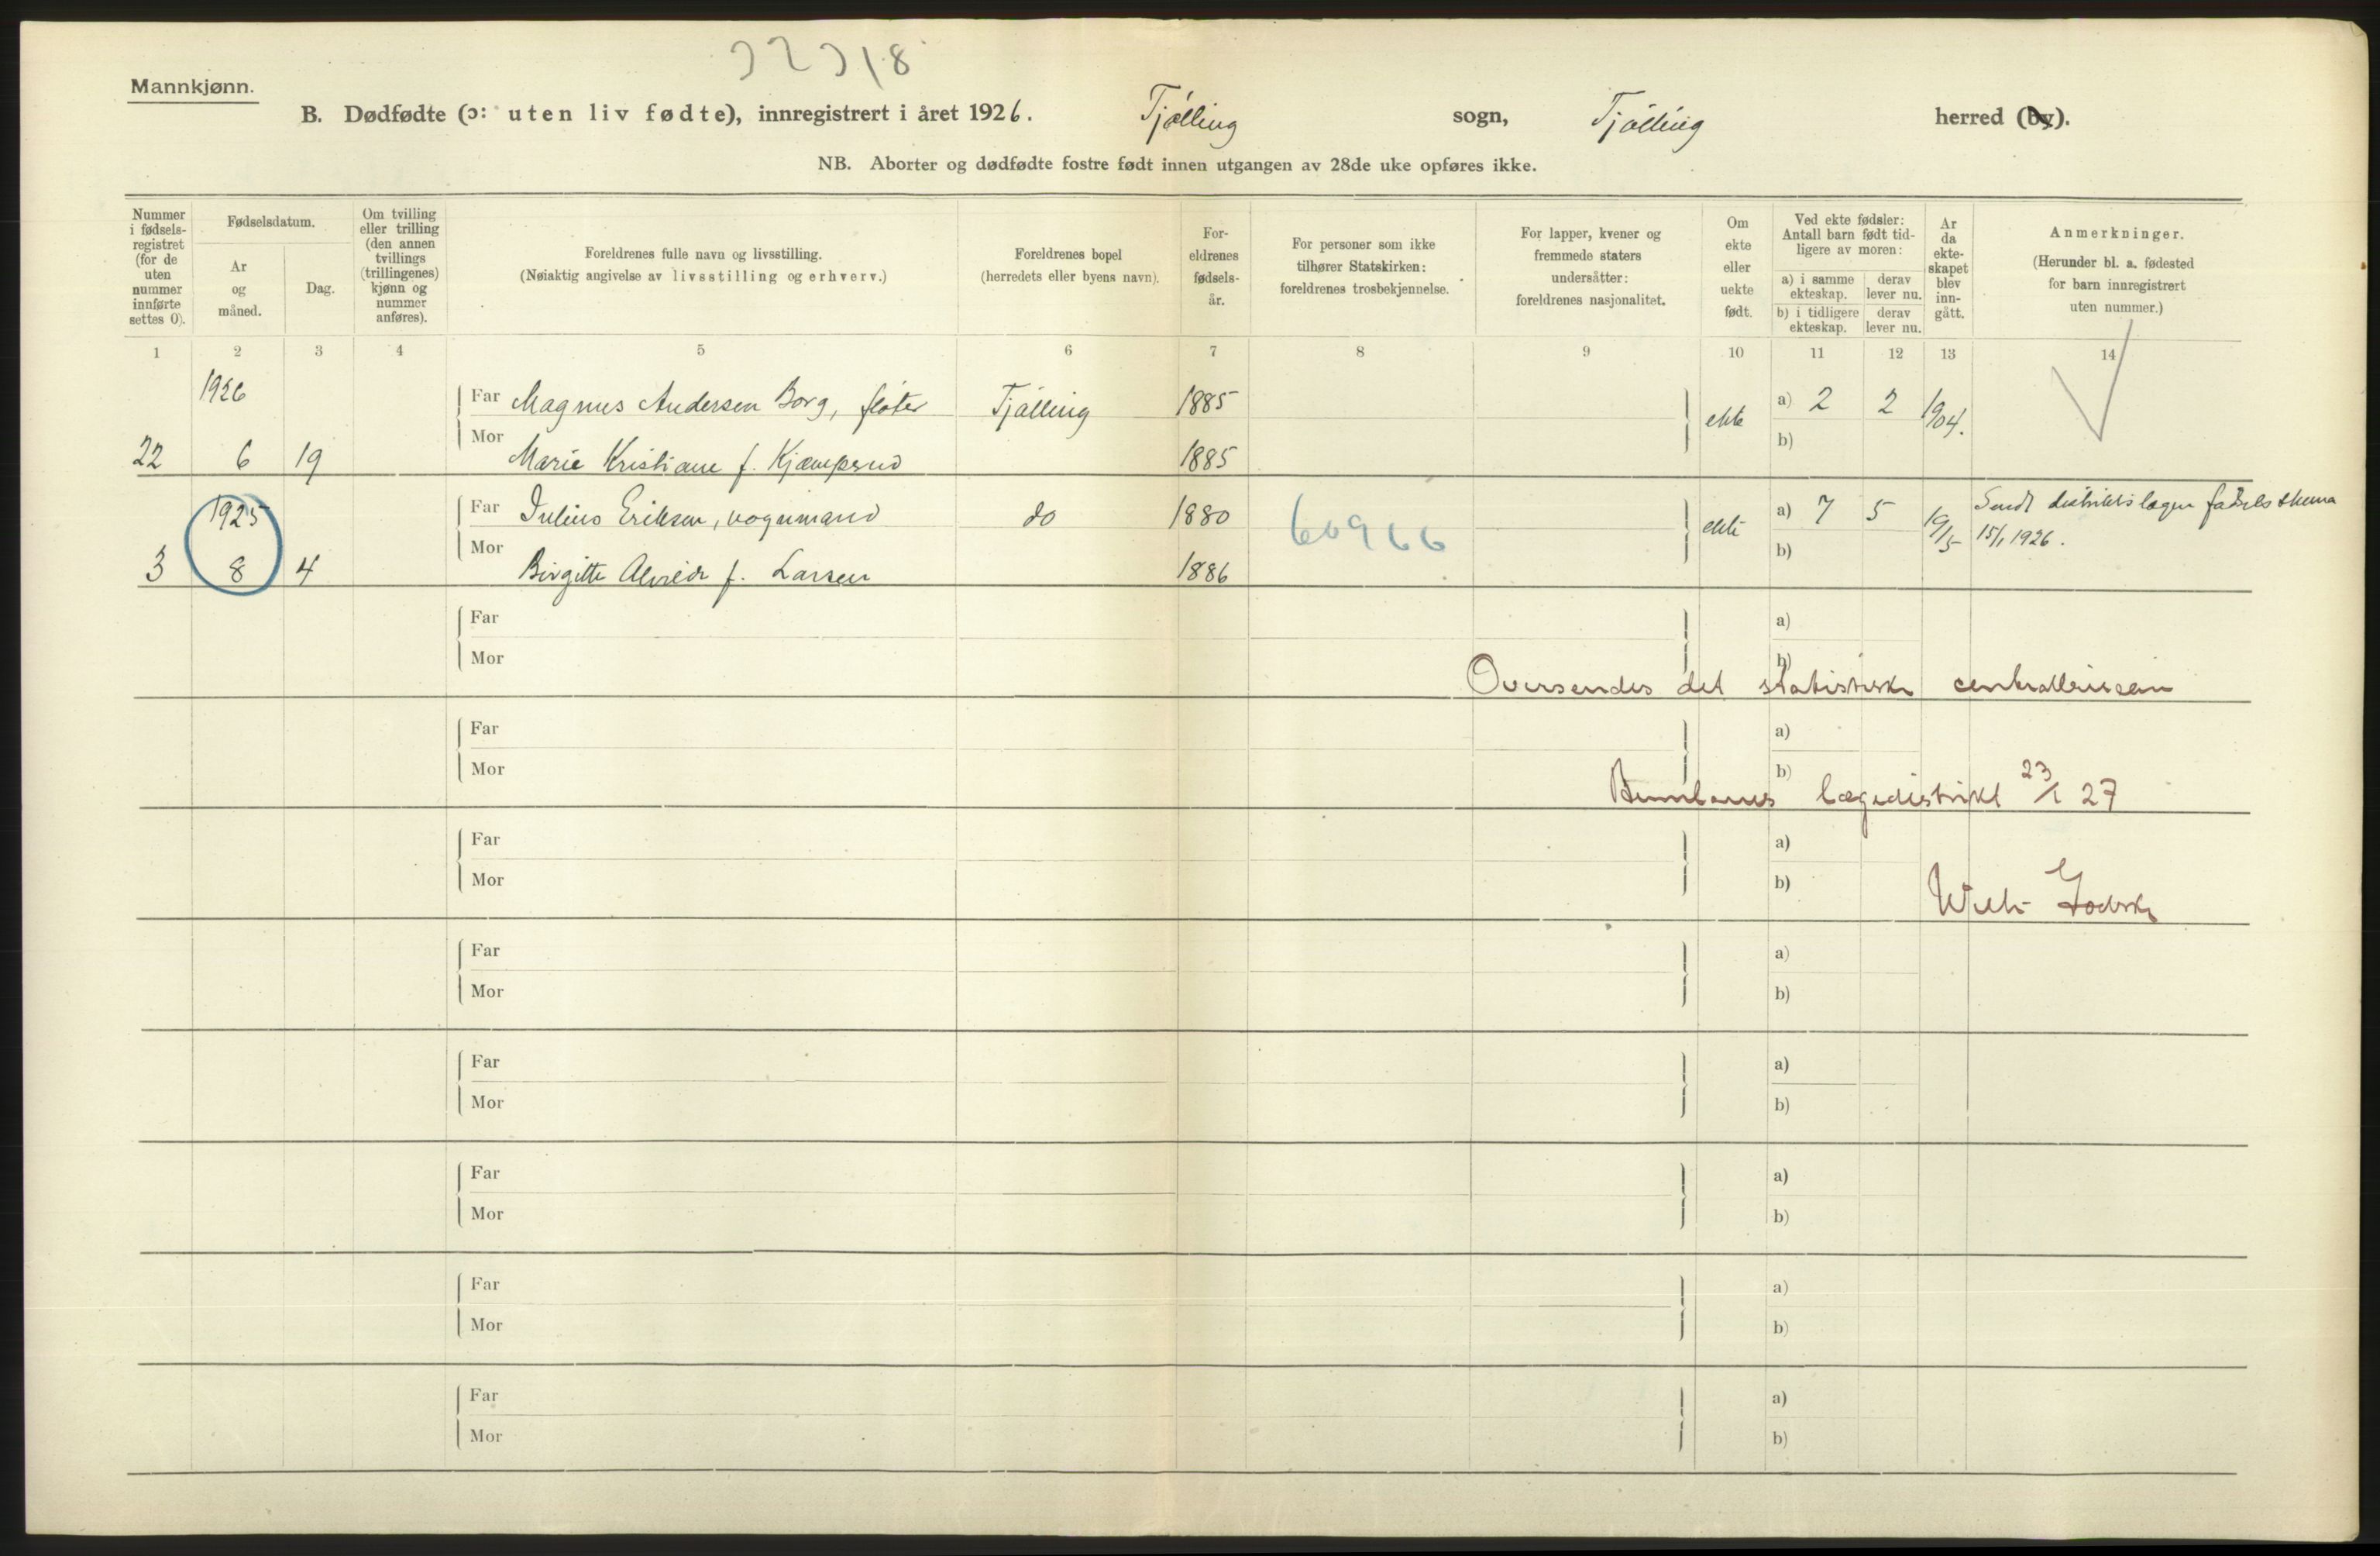 32318
Mannkjønn.
B. Dødfødte (ɔ: uten liv fødte), innregistrert i året 1926. Tjølling sogn, Tjølling herred (by).
NB. Aborter og dødfødte fostre født innen utgangen av 28de uke opføres ikke.
Nummer i fødsels-registret (for de uten nummer innførte settes 0).
Fødselsdatum.
År og måned.
Dag.
Om tvilling eller trilling (den annen tvillings (trillingenes) kjønn og nummer anføres).
Foreldrenes fulle navn og livsstilling.
(Nøiaktig angivelse av livsstilling og erhverv.)
Foreldrenes bopel
(herredets eller byens navn).
For-eldrenes fødsels-år.
For personer som ikke tilhører Statskirken: foreldrenes trosbekjennelse.
For lapper, kvener og fremmede staters undersåtter: foreldrenes nasjonalitet.
Om ekte eller uekte født.
Ved ekte fødsler: Antall barn født tid-ligere av moren:
a) i samme ekteskap. derav lever nu.
b) i tidligere ekteskap. derav lever nu.
År da ekte-skapet blev inn-gått.
Anmerkninger.
(Herunder bl. a. fødested for barn innregistrert uten nummer.)
1 2 3 4 5 6 7 8 9 10 11 12 13 14
1926
Far Magnus Andersen Borg, fløter Tjølling 1885 ekte a) 2 2 1904.
22 6 19 Mor Marie Kristiane f. Kjæmperud 1885 b)
1925
Far Julius Eriksen, vognmand do 1880 60966 ekte a) 7 5 19/5 Sendt distriktslægen fødselsskema
3 8 4 Mor Birgitte f. Larsen 1886 b) 15/1 1926.
Far a)
Mor b)
Oversendes det statistiske centralbureau
Far a)
Mor b)
lægedistrikt 23/1 27
Far a)
Mor b)
Far a)
Mor b)
Far a)
Mor b)
Far a)
Mor b)
Far a)
Mor b)
Far a)
Mor b)